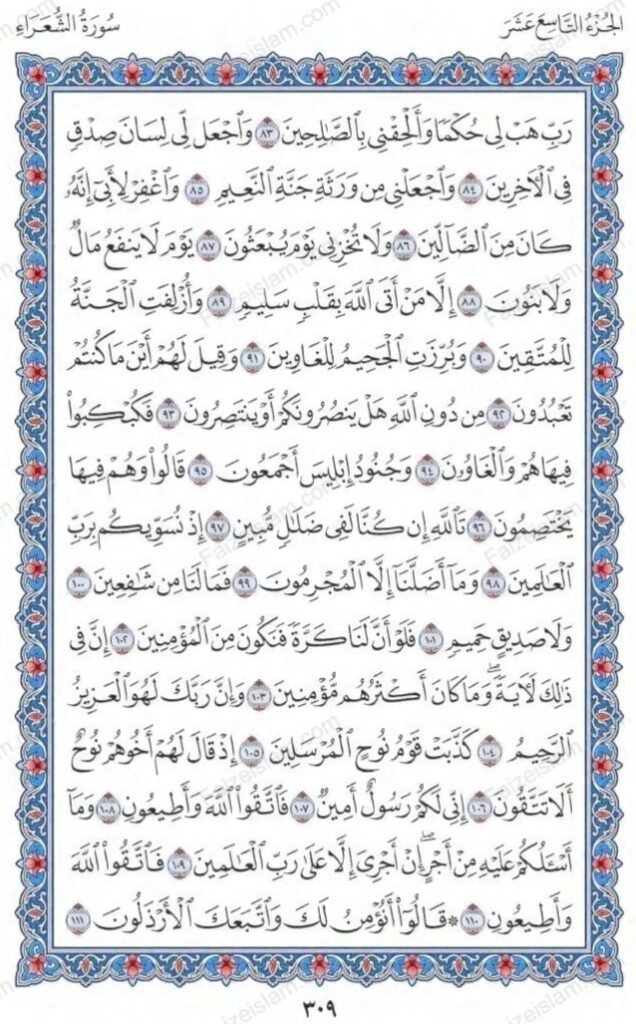 الجُزْءُ التَّاسِعَ عَشَرَ
سُورَةُ الشُّعَرَاءِ
رَبِّ هَبْ لِى حُكْمًا وَأَلْحِقْنِى بِٱلصَّـٰلِحِينَ ٨٣ وَٱجْعَل لِّى لِسَانَ صِدْقٍ
فِى ٱلْـَٔاخِرِينَ ٨٤ وَٱجْعَلْنِى مِن وَرَثَةِ جَنَّةِ ٱلنَّعِيمِ ٨٥ وَٱغْفِرْ لِأَبِىٓ إِنَّهُۥ
كَانَ مِنَ ٱلضَّآلِّينَ ٨٦ وَلَا تُخْزِنِى يَوْمَ يُبْعَثُونَ ٨٧ يَوْمَ لَا يَنفَعُ مَالٌ
وَلَا بَنُونَ ٨٨ إِلَّا مَنْ أَتَى ٱللَّهَ بِقَلْبٍ سَلِيمٍ ٨٩ وَأُزْلِفَتِ ٱلْجَنَّةُ
لِلْمُتَّقِينَ ٩٠ وَبُرِّزَتِ ٱلْجَحِيمُ لِلْغَاوِينَ ٩١ وَقِيلَ لَهُمْ أَيْنَ مَا كُنتُمْ
تَعْبُدُونَ ٩٢ مِن دُونِ ٱللَّهِ هَلْ يَنصُرُونَكُمْ أَوْ يَنتَصِرُونَ ٩٣ فَكُبْكِبُوا۟
فِيهَا هُمْ وَٱلْغَاوُۥنَ ٩٤ وَجُنُودُ إِبْلِيسَ أَجْمَعُونَ ٩٥ قَالُوا۟ وَهُمْ فِيهَا
يَخْتَصِمُونَ ٩٦ تَٱللَّهِ إِن كُنَّا لَفِى ضَلَـٰلٍ مُّبِينٍ ٩٧ إِذْ نُسَوِّيكُم بِرَبِّ
ٱلْعَـٰلَمِينَ ٩٨ وَمَآ أَضَلَّنَآ إِلَّا ٱلْمُجْرِمُونَ ٩٩ فَمَا لَنَا مِن شَـٰفِعِينَ ١٠٠
وَلَا صَدِيقٍ حَمِيمٍ ١٠١ فَلَوْ أَنَّ لَنَا كَرَّةً فَنَكُونَ مِنَ ٱلْمُؤْمِنِينَ ١٠٢ إِنَّ فِى
ذَٰلِكَ لَـَٔايَةً ۖ وَمَا كَانَ أَكْثَرُهُم مُّؤْمِنِينَ ١٠٣ وَإِنَّ رَبَّكَ لَهُوَ ٱلْعَزِيزُ
ٱلرَّحِيمُ ١٠٤ كَذَّبَتْ قَوْمُ نُوحٍ ٱلْمُرْسَلِينَ ١٠٥ إِذْ قَالَ لَهُمْ أَخُوهُمْ نُوحٌ
أَلَا تَتَّقُونَ ١٠٦ إِنِّى لَكُمْ رَسُولٌ أَمِينٌ ١٠٧ فَٱتَّقُوا۟ ٱللَّهَ وَأَطِيعُونِ ١٠٨ وَمَآ
أَسْـَٔلُكُمْ عَلَيْهِ مِنْ أَجْرٍ ۖ إِنْ أَجْرِىَ إِلَّا عَلَىٰ رَبِّ ٱلْعَـٰلَمِينَ ١٠٩ فَٱتَّقُوا۟ ٱللَّهَ
وَأَطِيعُونِ ١١٠ ۞ قَالُوٓا۟ أَنُؤْمِنُ لَكَ وَٱتَّبَعَكَ ٱلْأَرْذَلُونَ ١١١
٣٠٩
Faizeislam.com